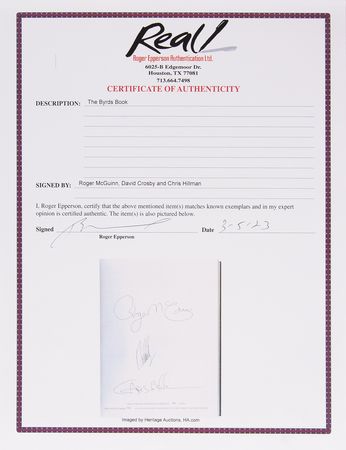 Real!
Roger Epperson Authentication Ltd.
6025-B Edgemoor Dr.
Houston, TX 77081
713.664.7498
CERTIFICATE OF AUTHENTICITY
DESCRIPTION: The Byrds Book
SIGNED BY: Roger McGuinn, David Crosby and Chris Hillman
I, Roger Epperson, certify that the above mentioned item(s) matches known exemplars and in my expert
opinion is certified authentic. The item(s) is also pictured below.
Signed Date 3-5-23
Roger Epperson
Imaged by Heritage Auctions, HA.com